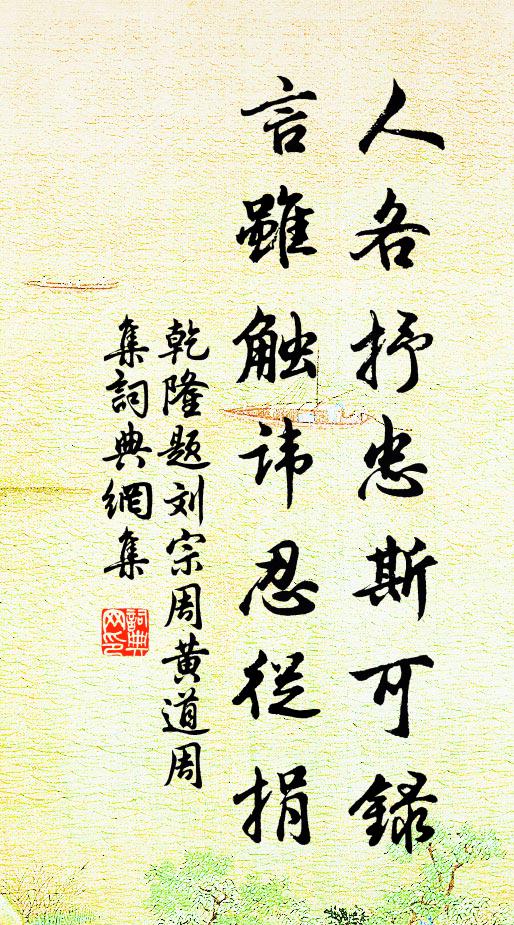 人各抒忠斯可録
言雖触讳忍從捐
乾隆题刘宗周黄道周
集詞典網集
詞典网印